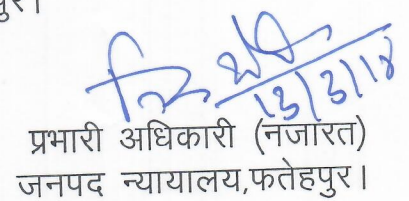 पुर।
13/3/18
प्रभारी अधिकारी (नजारत)
जनपद न्यायालय,फतेहपुर।